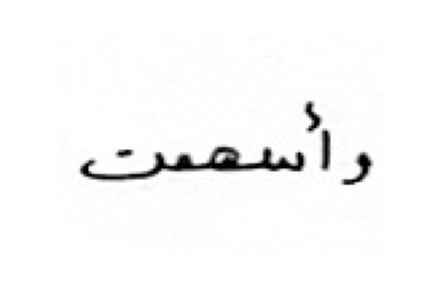 وأسهمت